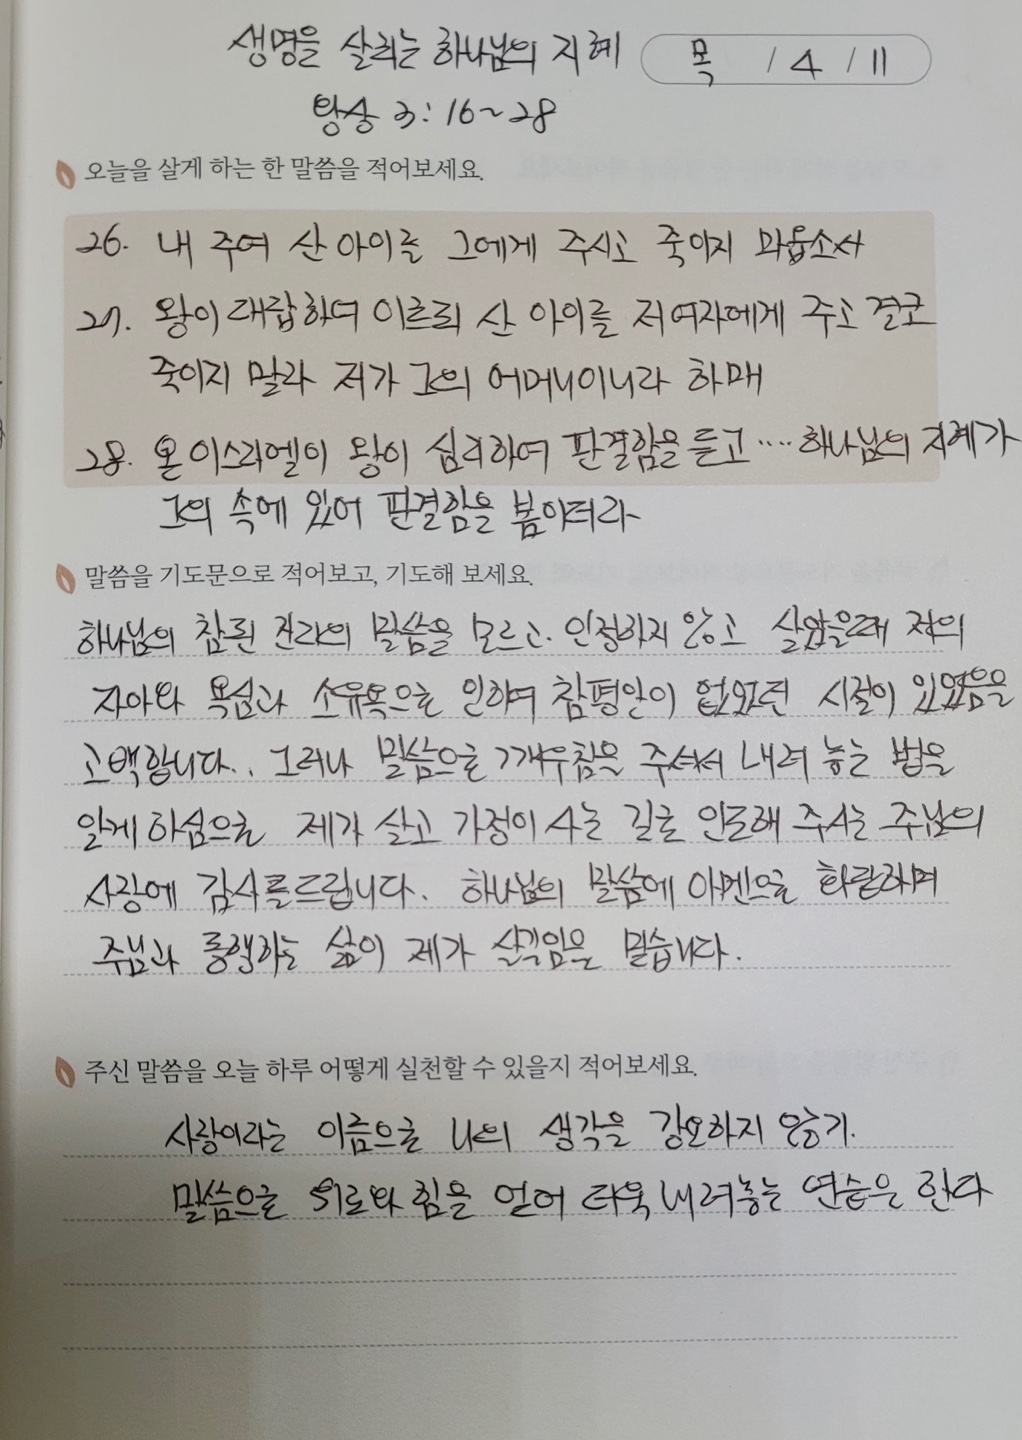 생명을 살리는 하나님의 지혜
목 / 4 / 11
왕상 3:16~28
오늘을 살게 하는 한 말씀을 적어보세요.
26. 내 주여 산 아이를 그에게 주시고 죽이지 마옵소서
27. 왕이 대답하여 이르되 산 아이를 저 여자에게 주고 결코
죽이지 말라 저가 그의 어머니이니라 하매
28. 온 이스라엘이 왕이 심리하여 판결함을 듣고 ···· 하나님의 지혜가
그의 속에 있어 판결함을 봄이더라
말씀을 기도문으로 적어보고, 기도해 보세요.
하나님의 참된 진리의 말씀을 모르고. 인정하지 않고 살았을때 저의
자아와 욕심과 소유욕으로 인하여 참평안이 없었던 시절이 있었음을
고백합니다.. 그러나 말씀으로 깨우침을 주셔서 내려 놓는 법을
알게 하심으로 제가 살고 가정이 사는 길로 인도해 주시는 주님의
사랑에 감사를드립니다. 하나님의 말씀에 아멘으로 화답하며
주님과 동행하는 삶이 제가 살길임을 믿습니다.
주신 말씀을 오늘 하루 어떻게 실천할 수 있을지 적어보세요.
사랑이라는 이름으로 나의 생각을 강요하지 않기.
말씀으로 위로와 힘을 얻어 더욱 내려놓는 연습을 한다